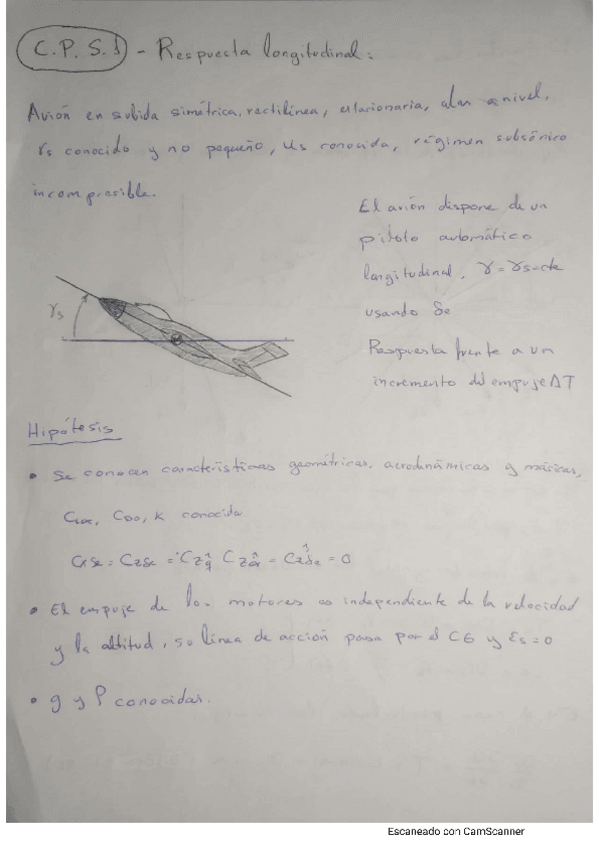 C.P.S.1 - Respuesta longitudinal:
Avión en subida simétrica, rectilínea, estacionaria, alas a nivel,
γs conocido y no pequeño, Us conocida, régimen subsónico
incompresible.
El avión dispone de un
piloto automático
longitudinal, γ=γs=cte
usando δe
Respuesta frente a un
incremento del empuje ΔT
γs
Hipótesis
• Se conocen características geométricas, aerodinámicas y másicas,
CLα, CD0, k conocida
• El empuje de los motores es independiente de la velocidad
y la altitud, su línea de acción pasa por el CG y εs=0
• g y ρ conocidas.
Escaneado con CamScanner